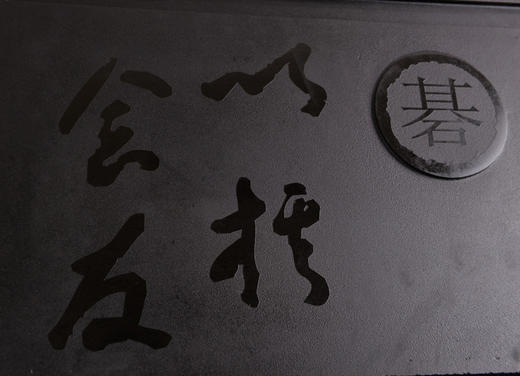 碁
以棋
会友